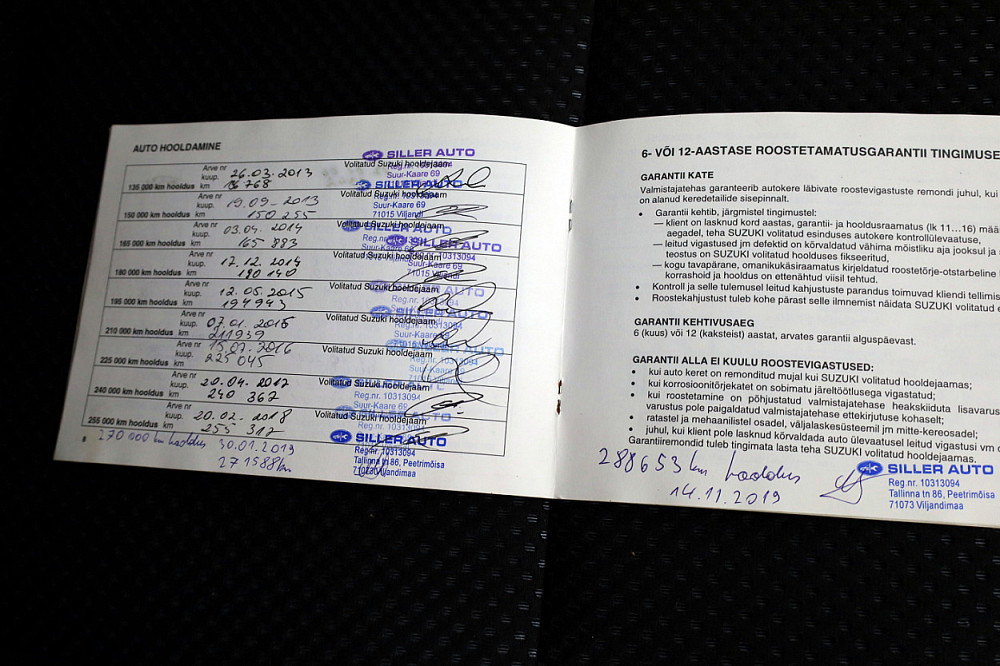 AUTO HOOLDAMINE
Arve nr
kuup. 26.03.2013
135 000 km hooldus km
Volitatud Suzuki hooldejaam
SILLER AUTO
Reg.nr. 10313094
Arve nr
kuup. 19.09.2013
150 000 km hooldus km 150 255
Volitatud Suzuki hooldejaam
SILLER AUTO
Suur-Kaare 69
71015 Viljandi
Arve nr
kuup. 03.04.2014
165 000 km hooldus km 165 883
Volitatud Suzuki hooldejaam
Reg.nr. 10313094
SILLER AUTO
Suur-Kaare 69
71015
Arve nr
kuup. 17.12.2014
180 000 km hooldus km 180 140
Volitatud Suzuki hooldejaam
Arve nr
kuup. 12.05.2015
195 000 km hooldus km 194943
Volitatud Suzuki hooldejaam
Reg.nr. 10313094
Suur-Kaare 69
Arve nr
kuup. 07.01.2016
210 000 km hooldus km 211939
Volitatud Suzuki hooldejaam
Reg.nr. 10313094
Suur-Kaare 69
Arve nr
kuup. 15.07.2016
225 000 km hooldus km 225 045
Volitatud Suzuki hooldejaam
Arve nr
kuup. 20.04.2017
240 000 km hooldus km 240 362
Volitatud Suzuki hooldejaam
Reg.nr. 10313094
Suur-Kaare 69
Arve nr
kuup. 20.02.2018
255 000 km hooldus km 255 312
Volitatud Suzuki hooldejaam
8
270 000 km hooldus 30.01.2019
271588 km
SILLER AUTO
Reg.nr. 10313094
Tallinna tn 86, Peetrimõisa
71073 Viljandimaa
6- VÕI 12-AASTASE ROOSTETAMATUSGARANTII TINGIMUSE
GARANTII KATE
Valmistajatehas garanteerib autokere läbivate roostevigastuste remondi juhul, kui
on alanud keredetailide sisepinnalt.
• Garantii kehtib, järgmistel tingimustel:
— klient on lasknud kord aastas, garantii- ja hooldusraamatus (lk 11…16) mää
aegadel, teha SUZUKI volitatud esinduses autokere kontrollülevaatuse,
— leitud vigastused jm defektid on kõrvaldatud vähima mõistliku aja jooksul ja
teostus on SUZUKI volitatud hoolduses fikseeritud,
— kogu tavapärane, omanikukäsiraamatus kirjeldatud roostetõrje-otstarbeline
korrashoid ja hooldus on ettenähtud viisil tehtud.
• Kontrolli ja selle tulemusel leitud kahjustuste parandus toimuvad kliendi tellimis
• Roostekahjustust tuleb kohe pärast selle ilmnemist näidata SUZUKI volitatud e
GARANTII KEHTIVUSAEG
6 (kuus) või 12 (kaksteist) aastat, arvates garantii alguspäevast.
GARANTII ALLA EI KUULU ROOSTEVIGASTUSED:
• kui auto keret on remonditud mujal kui SUZUKI volitatud hooldejaamas;
• kui korrosioonitõrjekatet on sobimatu järeltöötlusega vigastatud;
• kui roostetamine on põhjustatud valmistajatehase heakskiiduta lisavarus
varustus pole paigaldatud valmistajatehase ettekirjutuse kohaselt;
• ratastel ja mehaanilistel osadel, väljalaskesüsteemil jm mitte-kereosadel;
• juhul, kui klient pole lasknud kõrvaldada auto ülevaatusel leitud vigastusi vm
Garantiiremondid tuleb tingimata lasta teha SUZUKI volitatud hooldejaamas.
288653 km hooldus
14.11.2019
SILLER AUTO
Reg.nr. 10313094
Tallinna tn 86, Peetrimõisa
71073 Viljandimaa